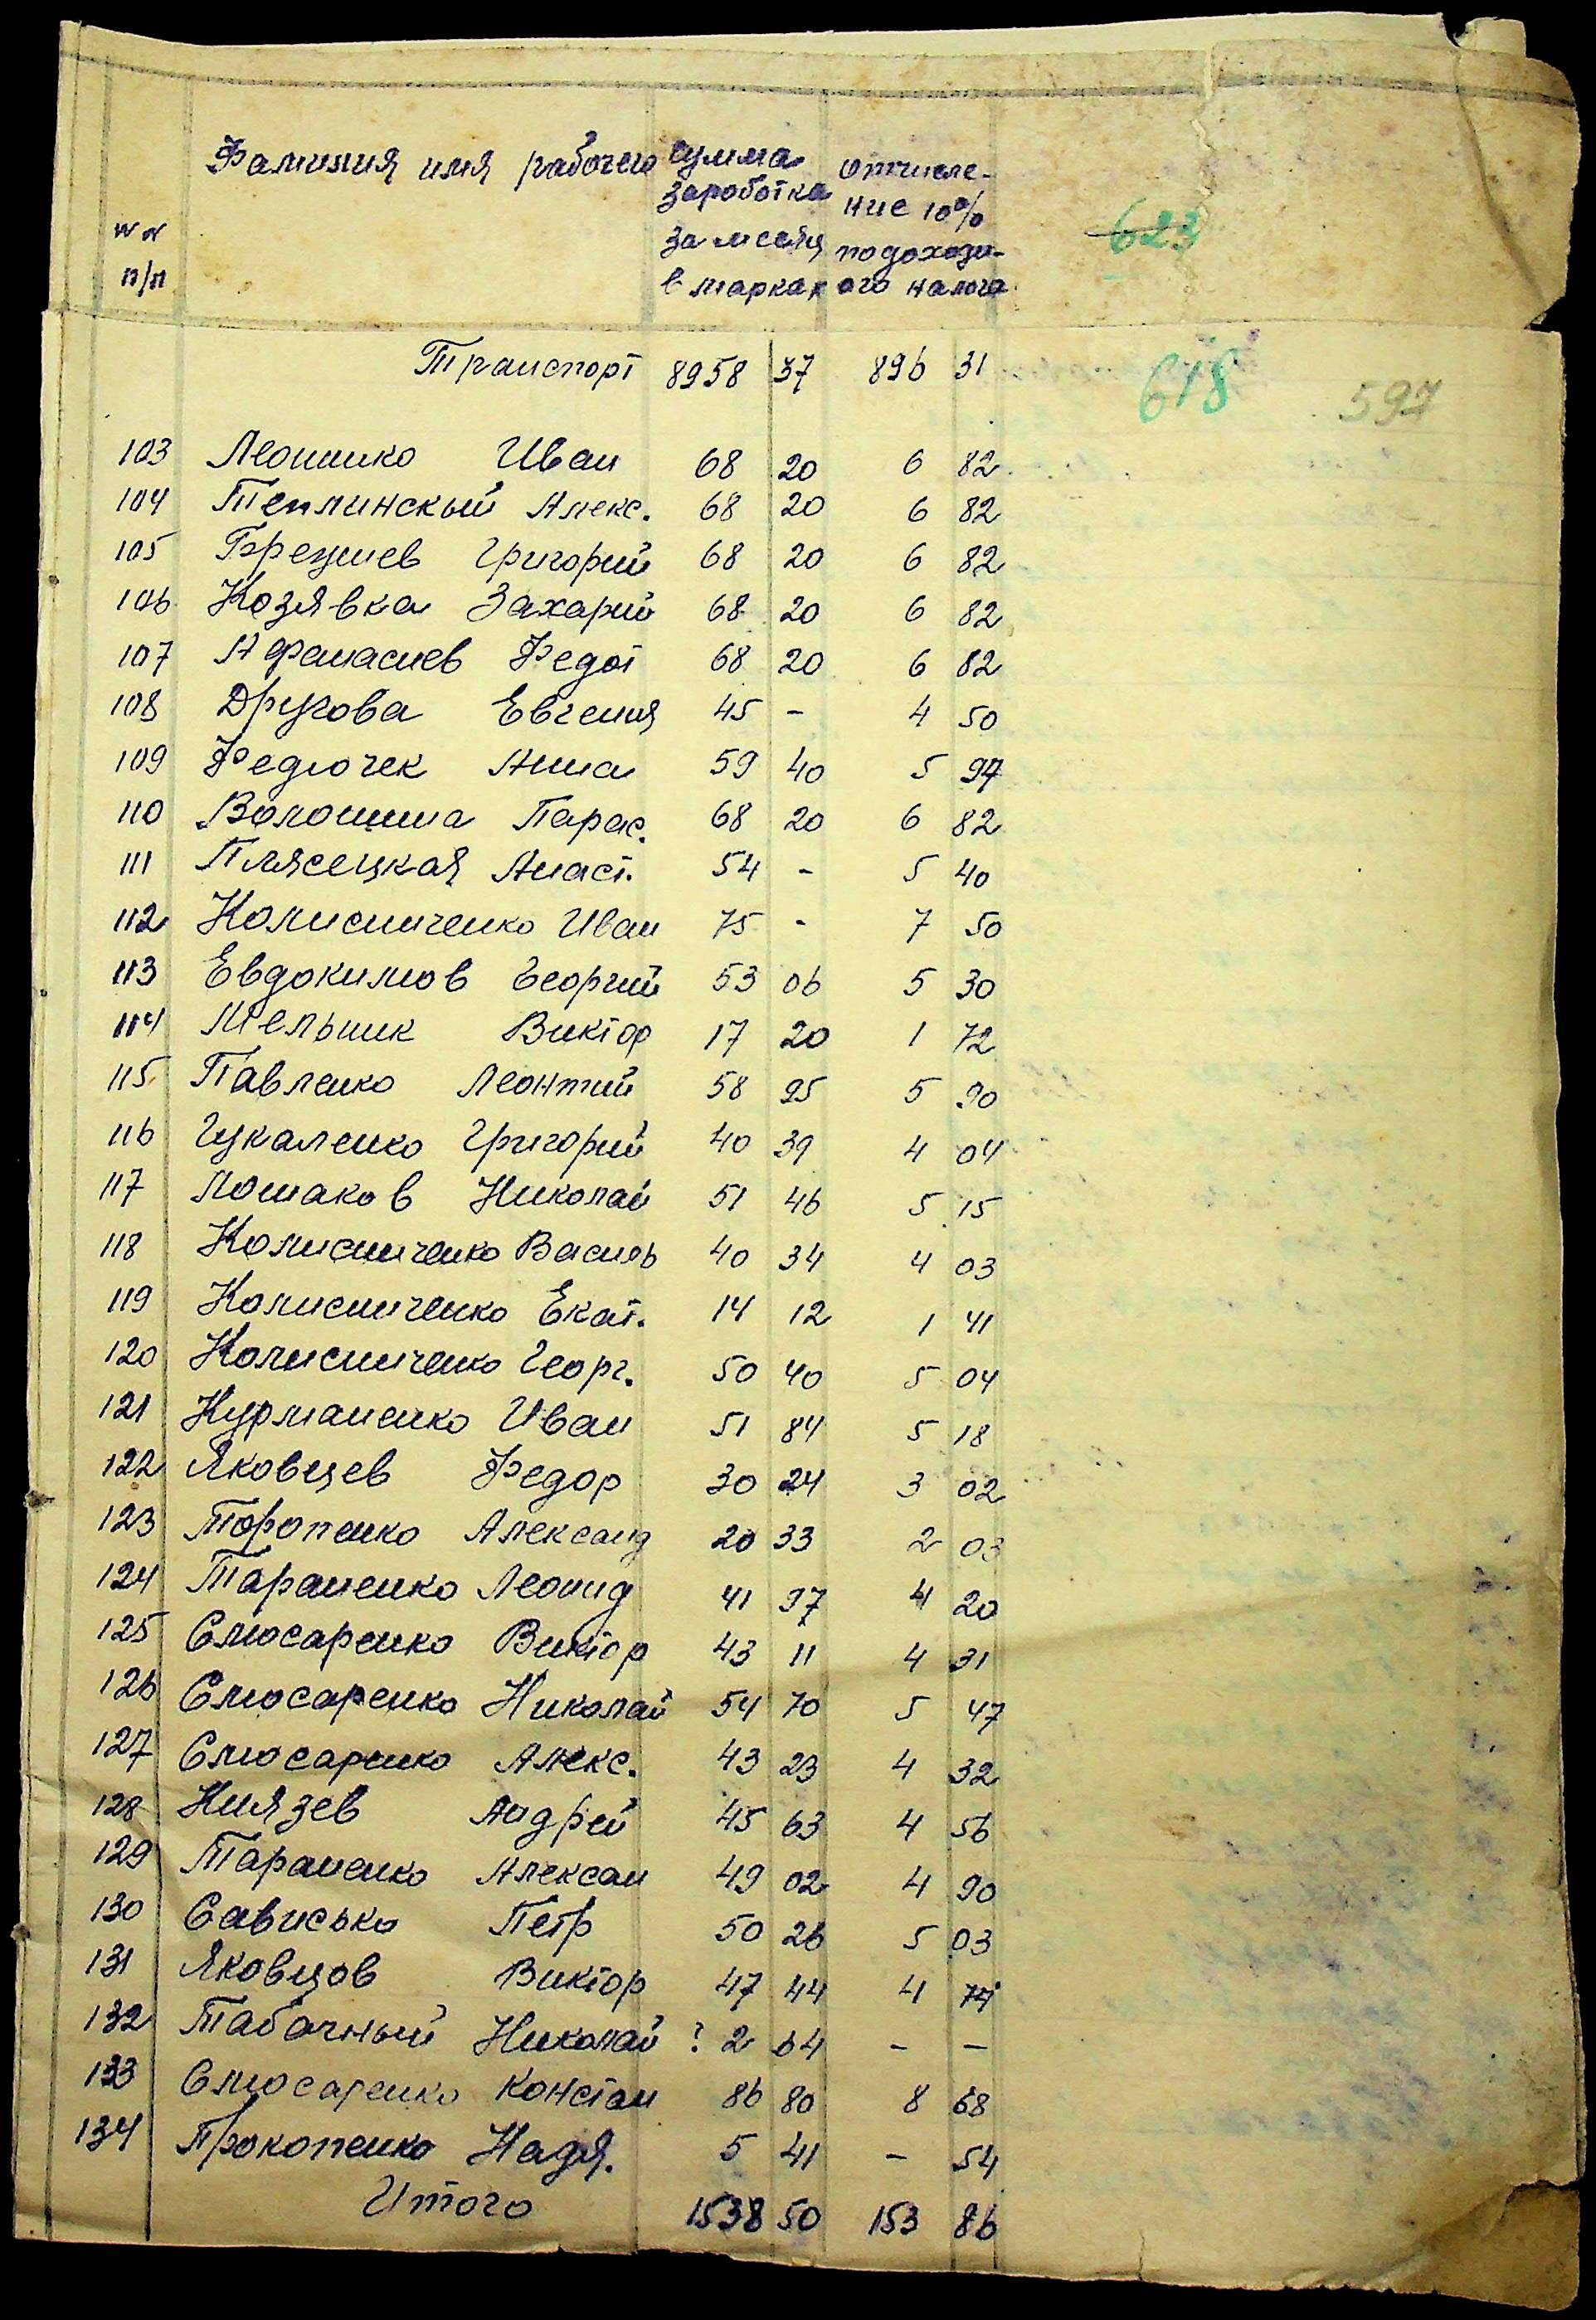 Фамилия имя рабочего сумма отчисле-
заработка ние 10%
№№ за месяц подоходн-
п/п в марках ого налога
623
Транспорт 8958 37 896 31
618 597
103 Леоненко Иван 68 20 6 82
104 Теплинскый Алекс. 68 20 6 82
105 Григорий 68 20 6 82
106 Козявка Захарий 68 20 6 82
107 Афанасиев Федот 68 20 6 82
108 Другова Евгения 45 - 4 50
109 Федючек Анна 59 40 5 94
110 Волошина Парас. 68 20 6 82
111 Плясецкая Анаст. 54 - 5 40
112 Колисниченко Иван 75 - 7 50
113 Евдокимов Георгий 53 06 5 30
114 Мельник Виктор 17 20 1 72
115 Павленко Леонтий 58 95 5 90
116 Цукаленко Григорий 40 39 4 04
117 Лошаков Николай 51 46 5 15
118 Колисниченко Василь 40 34 4 03
119 Колисниченко Екат. 14 12 1 41
120 Колисниченко Георг. 50 40 5 04
121 Курманенко Иван 51 84 5 18
122 Яковцев Федор 30 24 3 02
123 Торопенко Александ 20 33 2 03
124 Тараненко Леонид 41 97 4 20
125 Слюсаренко Виктор 43 11 4 31
126 Слюсаренко Николай 54 70 5 47
127 Слюсаренко Алекс. 43 23 4 32
128 Князев Андрей 45 63 4 56
129 Тараненко Алексан 49 02 4 90
130 Сависько Петр 50 26 5 03
131 Яковцов Виктор 47 44 4 74
132 Табачный Николай ? 2 64 - -
133 Слюсаренко Констан 86 80 8 68
134 Прокопенко Надя. 5 41 - 54
Итого 1538 50 153 86